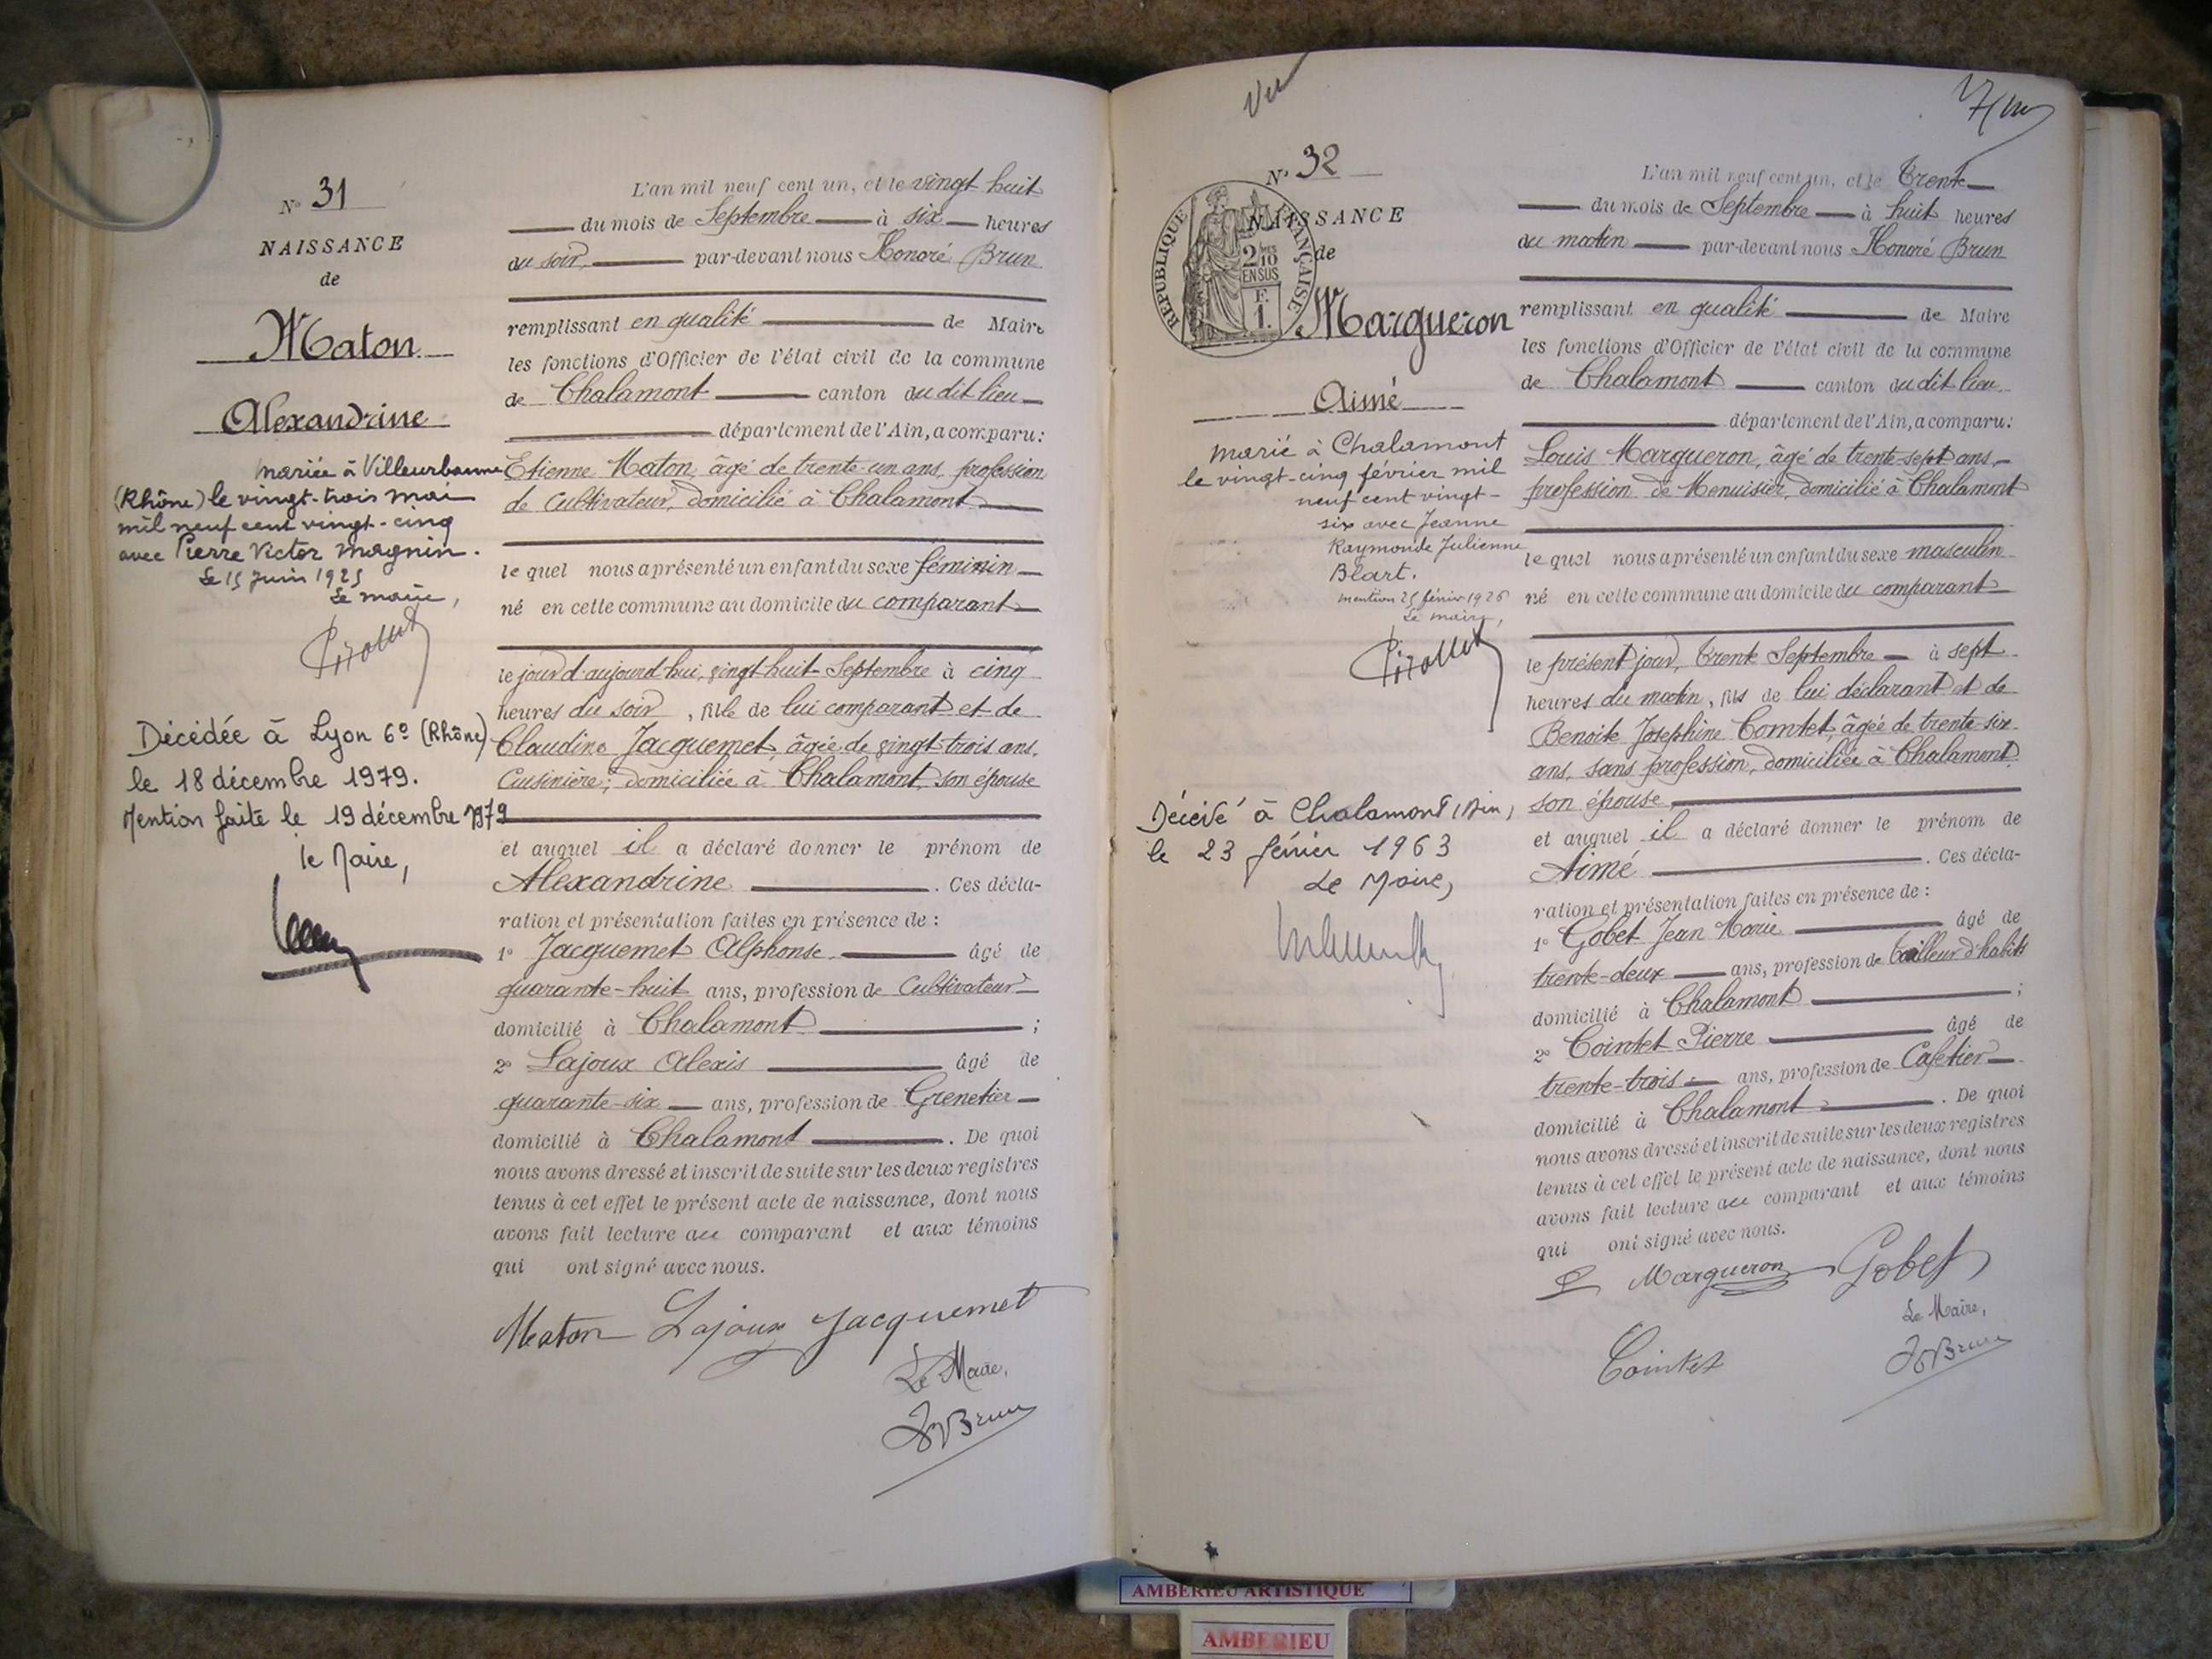 N° 31
NAISSANCE
de
Maton
Alexandrine
mariée à Villeurbanne
(Rhône) le vingt-trois mai
mil neuf cent vingt-cinq
avec Pierre Victor Magnin.
Le 15 Juin 1925
Le maire,
Décédée à Lyon 6e (Rhône)
le 18 décembre 1979.
Mention faite le 19 décembre 1979
le Maire,
L'an mil neuf cent un, et le vingt huit
du mois de Septembre à six heures
du soir, par-devant nous Honoré Brun
remplissant en qualité de Maire
les fonctions d'Officier de l'état civil de la commune
de Chalamont canton du dit lieu
département de l'Ain, a comparu:
Etienne Maton, âgé de trente-un ans, profession
de Cultivateur, domicilié à Chalamont
le quel nous a présenté un enfant du sexe féminin
né en cette commune au domicile du comparant
le jour d'aujourd'hui, vingt huit Septembre à cinq
heures du soir, fille de lui comparant et de
Claudine Jacquemet, âgée de vingt trois ans,
Cuisinière; domiciliée à Chalamont, son épouse
et auquel il a déclaré donner le prénom de
Alexandrine. Ces décla-
ration et présentation faites en présence de:
1° Jacquemet Alphonse âgé de
quarante-huit ans, profession de Cultivateur
domicilié à Chalamont ;
2° Lajoux Alexis âgé de
quarante-six ans, profession de Grenetier
domicilié à Chalamont. De quoi
nous avons dressé et inscrit de suite sur les deux registres
tenus à cet effet le présent acte de naissance, dont nous
avons fait lecture au comparant et aux témoins
qui ont signé avec nous.
Maton Lajoux Jacquemet
Le Maire,
Brun
Vu
N° 32
NAISSANCE
de
REPUBLIQUE FRANÇAISE
2/10
EN SUS
F.
1.
Margueron
Aimé
marié à Chalamont
le vingt-cinq février mil
neuf cent vingt-
six avec Jeanne
Raymonde Julienne
Blart.
mention 25 février 1926
Le maire,
Décédé à Chalamont (Ain)
le 23 février 1963
Le Maire,
L'an mil neuf cent un, et le Trente
du mois de Septembre à huit heures
du matin par-devant nous Honoré Brun
remplissant en qualité de Maire
les fonctions d'Officier de l'état civil de la commune
de Chalamont canton du dit lieu
département de l'Ain, a comparu:
Louis Margueron, âgé de trente-sept ans,
profession de Menuisier, domicilié à Chalamont
le quel nous a présenté un enfant du sexe masculin
né en cette commune au domicile du comparant
le présent jour, trente Septembre à sept
heures du matin, fils de lui déclarant et de
Benoite Josephine Comtet, âgée de trente-six
ans, sans profession, domiciliée à Chalamont
son épouse
et auquel il a déclaré donner le prénom de
Aimé. Ces décla-
ration et présentation faites en présence de:
1° Gobet Jean Marie âgé de
trente-deux ans, profession de tailleur d'habits
domicilié à Chalamont ;
2° Cointet Pierre âgé de
trente-trois ans, profession de Cafetier
domicilié à Chalamont. De quoi
nous avons dressé et inscrit de suite sur les deux registres
tenus à cet effet le présent acte de naissance, dont nous
avons fait lecture au comparant et aux témoins
qui ont signé avec nous.
Margueron Gobet
Le Maire,
Cointet Brun
AMBERIEU ARTISTIQUE
AMBERIEU